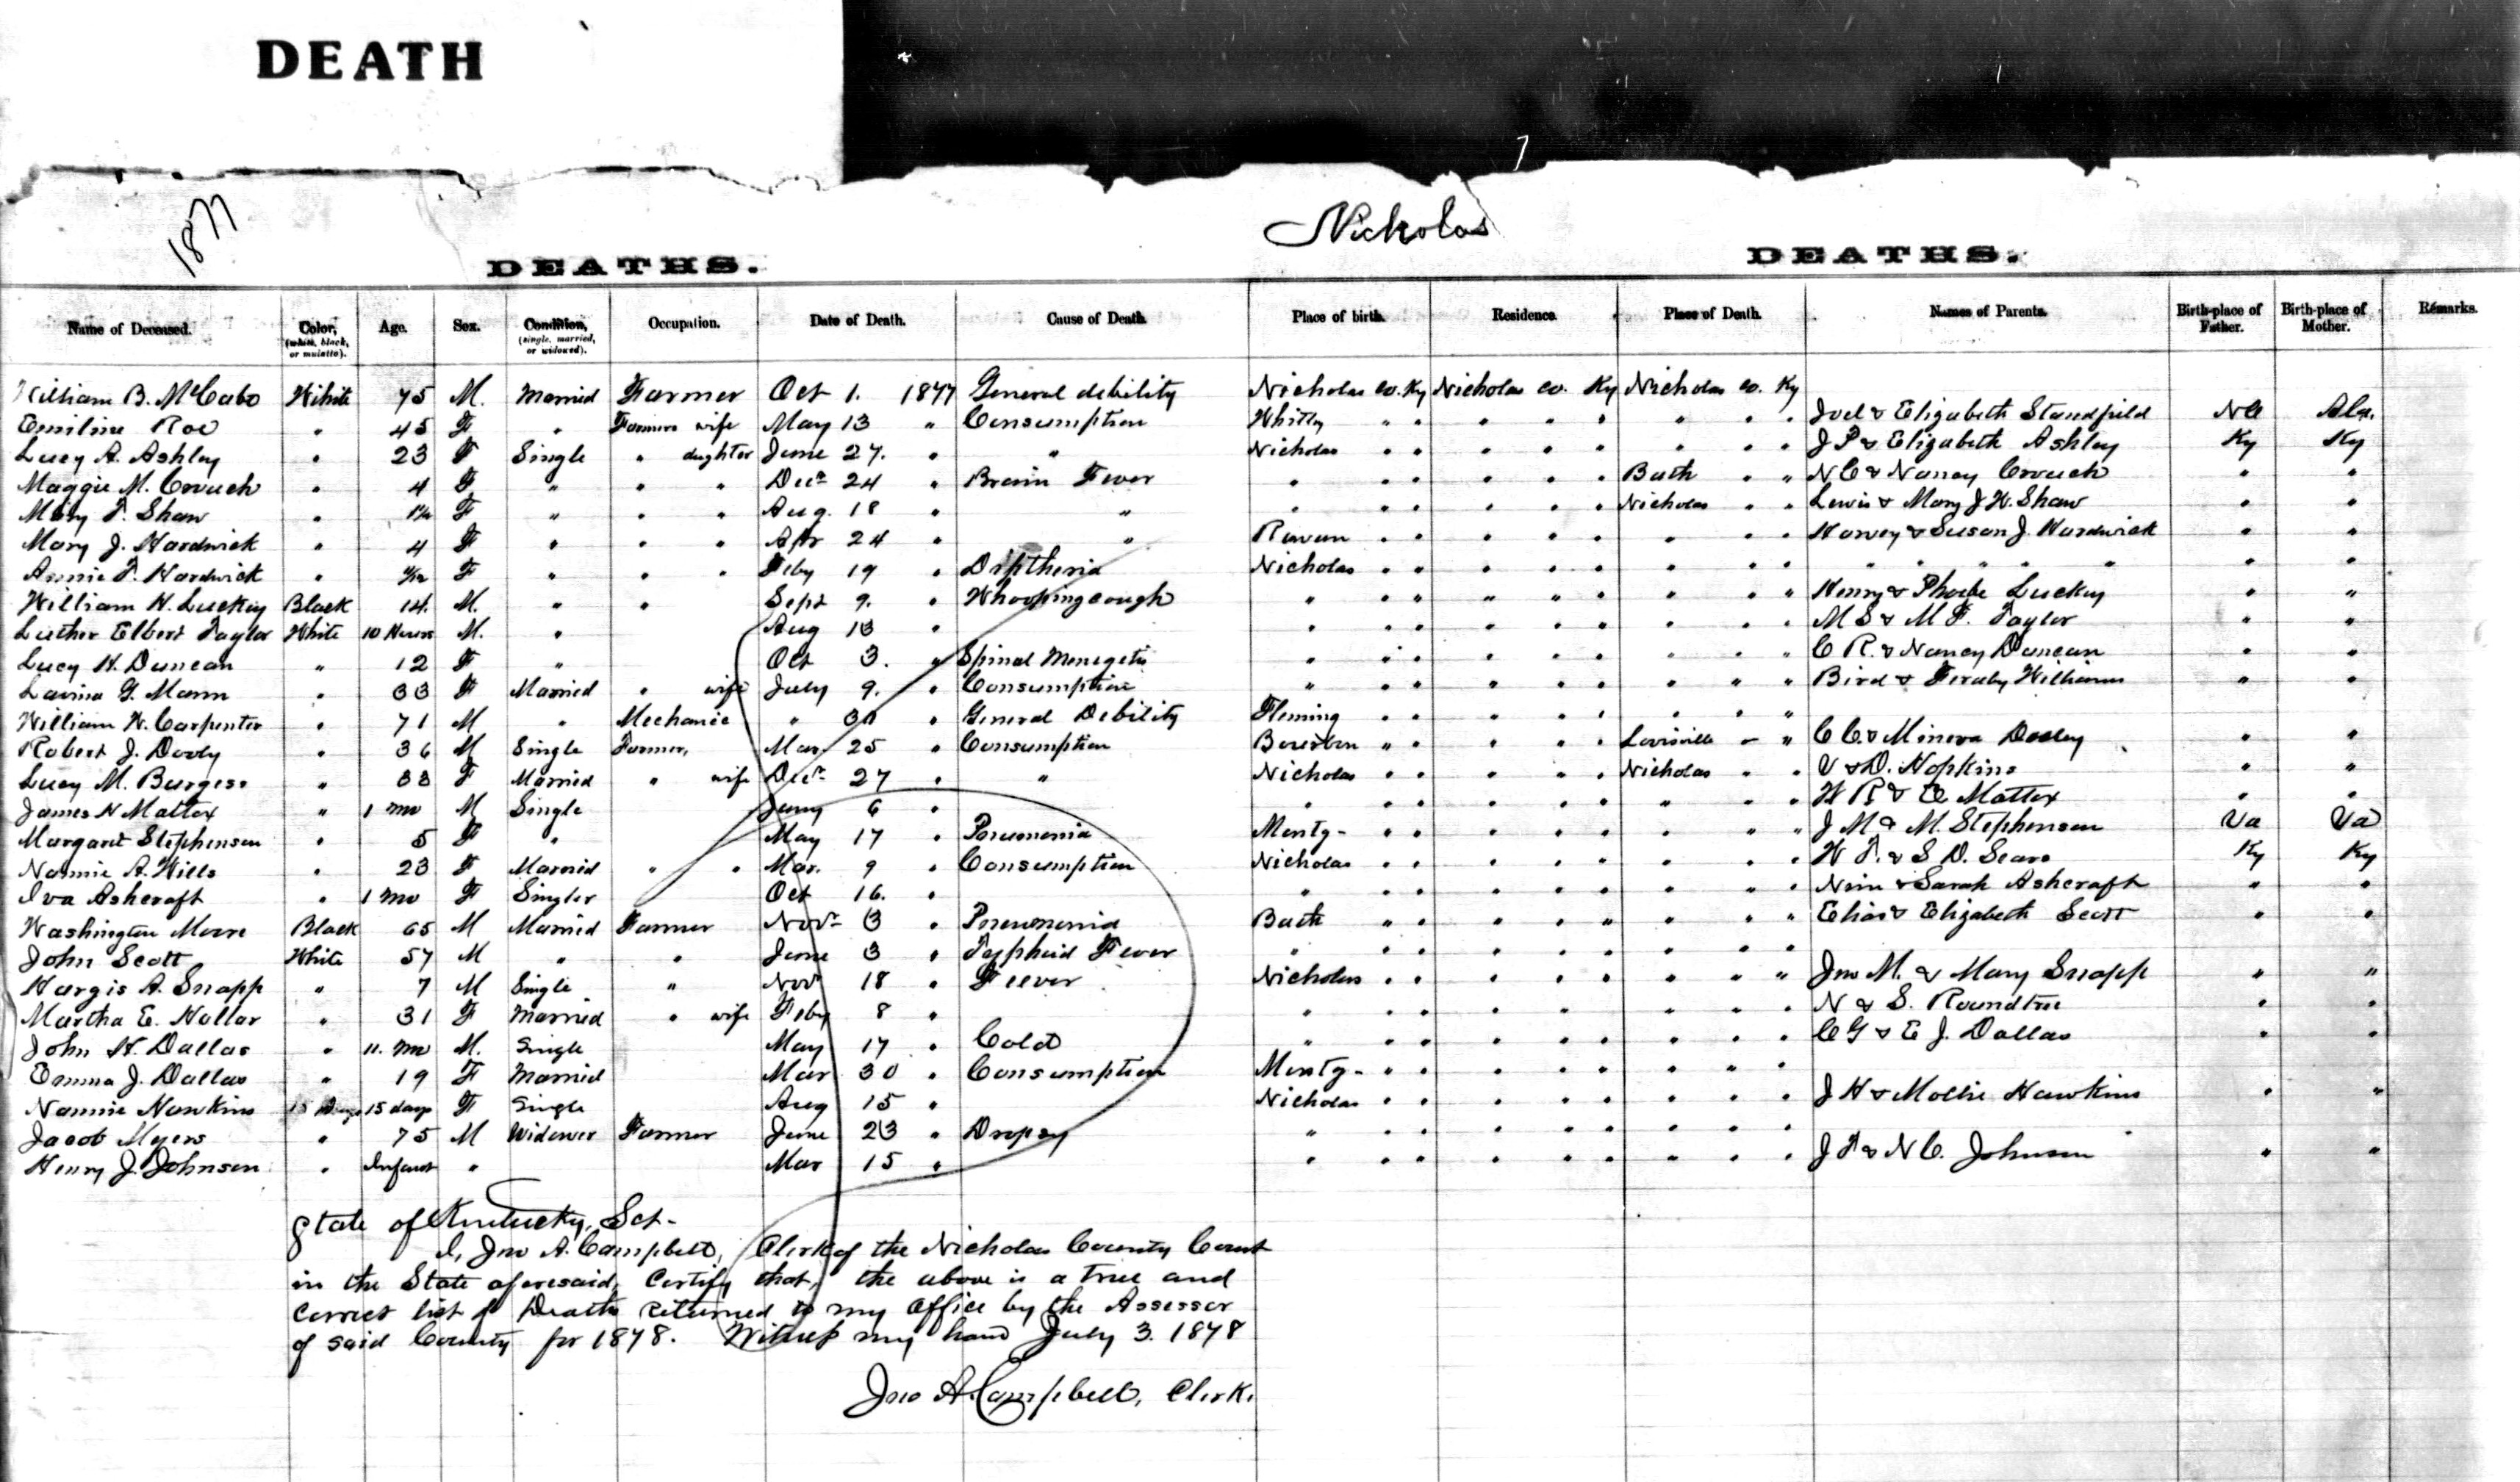 DEATH
1877
Nicholas
DEATHS. DEATHS.
Name of Deceased. Color, (white, black, or mulatto). Age. Sex. Condition, (single, married, or widowed). Occupation. Date of Death. Cause of Death. Place of birth. Residence. Place of Death. Names of Parents. Birth-place of Father. Birth-place of Mother. Remarks.
William B. McCabe White 75 M. Married Farmer Oct 1. 1877 General debility Nicholas Co. Ky Nicholas Co. Ky Nicholas Co. Ky
Emiline Roe " 45 F " Farmers wife May 13 " Consumption Whitly " " " " " " " " Joel & Elizabeth Standfield NC Ala.
Lucy A. Ashley " 23 F Single " daughter June 27. " " Nicholas " " " " " " " " J P & Elizabeth Ashley Ky Ky
Maggie M. Crouch " 4 F " " " Decr 24 " Brain Fever " " " " " " Bath " " N C & Nancy Crouch " "
Mary F. Shaw " F " " " Aug. 18 " " " " " " " " Nicholas " " Lewis & Mary J H. Shaw " "
Mary J. Hardwick " 4 F " " " Apr 24 " " Rowan " " " " " " " " Harvey & Susan J. Hardwick " "
Annie F. Hardwick " F " " " Feby 19 " Diptheria Nicholas " " " " " " " " " " " " " " "
William H. Luckey Black 14. M. " " Sept 9. " Whoopingcough " " " " " " " " " Henry & Phoebe Luckey " "
Luther Elbert Taylor White 10 Hours M. " Aug 13 " " " " " " " " " " M S & M F. Taylor " "
Lucy H. Duncan " 12 F " Oct 3. " Spinal Menegetis " " " " " " " " " C R. & Nancy Duncan " "
Lavina G. Mann " 33 F Married " wife July 9. " Consumption " " " " " " " " " Bird & Williams " "
William W. Carpenter " 71 M " Mechanic " " General Debility Fleming " " " " " " " "
Robert J. Dooly " 36 M Single Farmer, Mar 25 " Consumption Bourbon " " " " " Louisville " " C C. & Minerva Dooley " "
Lucy M. Burgess " 33 F Married " wife Decr 27 " " Nicholas " " " " " Nicholas " " V & D. Hopkins " "
James H Mattox " 1 mo M Single Jany 6 " " " " " " " " " " W R & E Mattox " "
Margaret Stephenson " 5 F " May 17 " Pneumonia Montg- " " " " " " " " J M & M. Stephenson Va Va
Nannie A. Wills " 23 F Married " " Mar. 9 " Consumption Nicholas " " " " " " " " W F. & S D. Sears Ky Ky
Iva Ashcraft " 1 mo F Singler Oct 16. " " " " " " " " " " Nim & Sarah Ashcraft " "
Washington Moore Black 65 M Married Farmer Novr 3 " Pneumonia Bath " " " " " " " " Elias & Elizabeth Scott " "
John Scott White 57 M " " June 3 " Typhoid Fever " " " " " " " " "
Hargis A. Snapp " 7 M Single " Novr 18 " Feever Nicholas " " " " " " " " Jno M. & Mary Snapp " "
Martha E. Hollar " 31 F Married " wife Feby 8 " " " " " " " " " " N & S. Roundtree " "
John H. Dallas " 11. mo M. Single May 17 " Cold " " " " " " " " " C G & E J. Dallas " "
Emma J. Dallas " 19 F Married Mar 30 " Consumption Montg- " " " " " " " "
Nannie Hawkins 15 days F Single Aug 15 " Nicholas " " " " " " " " J H & Mollie Hawkins " "
Jacob Myers " 75 M Widower Farmer June 23 " Dropsy " " " " " " " " "
Henry J. Johnson " Infant " Mar 15 " " " " " " " " " " J F & N C. Johnson " "
State of Kentucky, Sct-
I, Jno A. Campbell, Clerk of the Nicholas County Court
in the State aforesaid, Certify that, the above is a true and
Correct list of Deaths returned to my Office by the Assessor
of said County for 1878. Witness my hand July 3. 1878
Jno A. Campbell, Clerk.